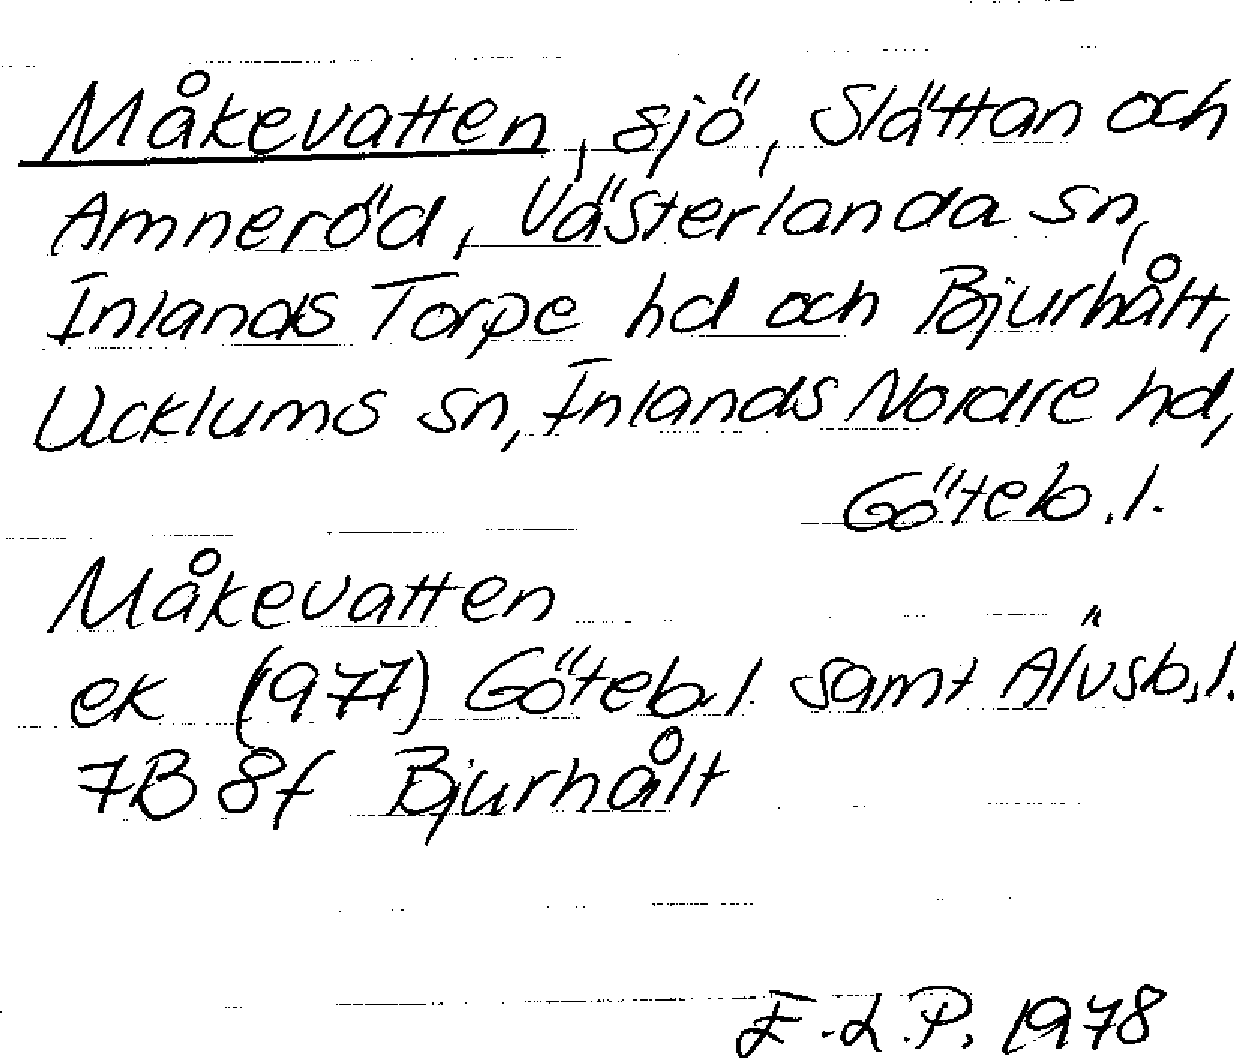 Måkevatten, sjö, Slättan och
Amneröd, Västerlanda sn,
Inlands Torpe hd och Bjurhålt,
Ucklums sn, Inlands Nordre hd,
Göteb.l.
Måkevatten
ek (1977) Göteb.l. samt Älvsb.l.
7B 8f Bjurhålt
E.L.P. 1978